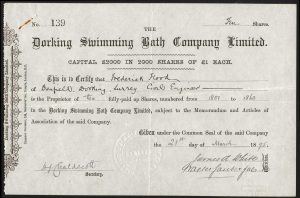 No. 139 Ten Shares.
THE
Dorking Swimming Bath Company Limited.
CAPITAL £2000 IN 2000 SHARES OF £1 EACH.
This is to Certify that Frederick Hook
of Dorking, Surrey Civil Engineer
is the Proprietor of Ten fully-paid up Shares, numbered from 1851 to 1860
in the Dorking Swimming Bath Company Limited, subject to the Memorandum and Articles of
Association of the said Company.
Given under the Common Seal of the said Company
the 21st day of March 1895.
James White
Secretary.